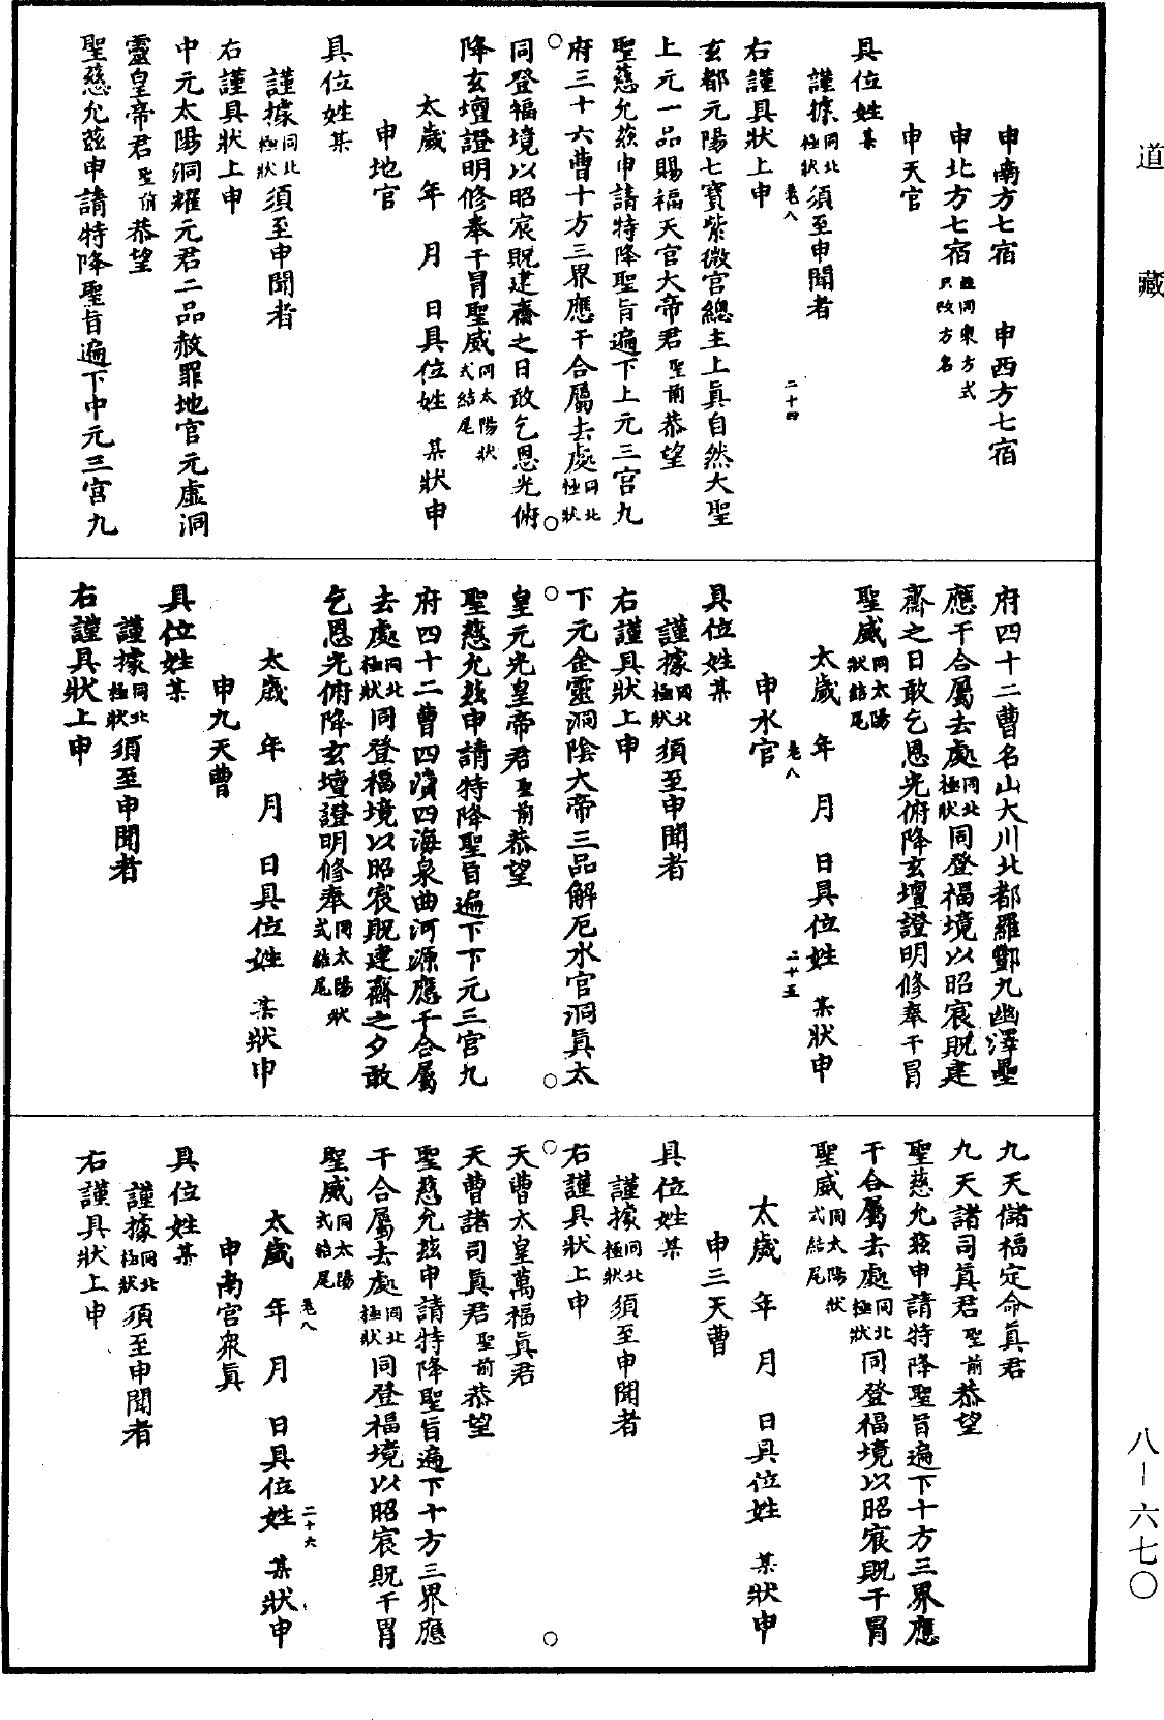 道藏
申南方七宿　申西方七宿
申北方七宿並同東方式只改方名
申天官
具位姓某
謹據同北極狀須至申聞者
卷八　二十四
右謹具狀上申
玄都元陽七寶紫微宮總主上真自然大聖
上元一品賜福天官大帝君聖前恭望
聖慈允茲申請特降聖旨遍下上元三宮九
府三十六曹十方三界應干合屬去處同北極狀
同登福境以昭宸貺建齋之日敢乞恩光俯
降玄壇證明修奉干冒聖威同太陽狀式結尾
太歲　年　月　日具位姓　某狀申
申地官
具位姓某
謹據同北極狀須至申聞者
右謹具狀上申
中元太陽洞耀元君二品赦罪地官元虛洞
靈皇帝君聖前恭望
聖慈允茲申請特降聖旨遍下中元三宮九
府四十二曹名山大川北都羅酆九幽澤壘
應干合屬去處同北極狀同登福境以昭宸貺建
齋之日敢乞恩光俯降玄壇證明修奉干冒
聖威同太陽狀結尾
太歲　年　月　日具位姓　某狀申
卷八　二十五
申水官
具位姓某
謹據同北極狀須至申聞者
右謹具狀上申
下元金靈洞陰大帝三品解厄水官洞真太
皇元光皇帝君聖前恭望
聖慈允茲申請特降聖旨遍下下元三官九
府四十二曹四瀆四海泉曲河源應干合屬
去處同北極狀同登福境以昭宸貺建齋之夕敢
乞恩光俯降玄壇證明修奉同太陽狀式結尾
太歲　年　月　日具位姓　某狀申
申九天曹
具位姓某
謹據同北極狀須至申聞者
右謹具狀上申
九天儲福定命真君
九天諸司真君聖前恭望
聖慈允茲申請特降聖旨遍下十方三界應
干合屬去處同北極狀同登福境以昭宸貺干冒
聖威同太陽狀式結尾
太歲　年　月　日具位姓　某狀申
申三天曹
具位姓某
謹據同北極狀須至申聞者
右謹具狀上申
天曹太皇萬福真君
天曹諸司真君聖前恭望
聖慈允茲申請特降聖旨遍下十方三界應
干合屬去處同北極狀同登福境以昭宸貺干冒
聖威同太陽式結尾
卷八　二十六
太歲　年　月　日具位姓　某狀申
申南宮眾真
具位姓某
謹據同北極狀須至申聞者
右謹具狀上申
八－六七〇